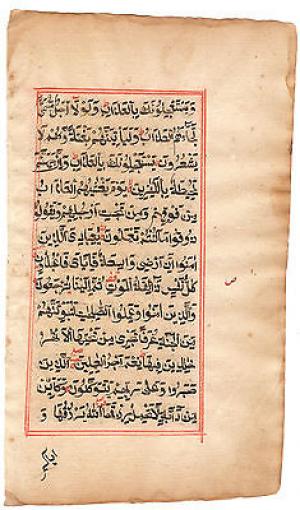 وَيَسْتَعْجِلُونَكَ بِالْعَذَابِ وَلَوْلَا أَجَلٌ مُسَمًّى
لَجَاءَهُمُ الْعَذَابُ وَلَيَأْتِيَنَّهُمْ بَغْتَةً وَهُمْ لَا
يَشْعُرُونَ يَسْتَعْجِلُونَكَ بِالْعَذَابِ وَإِنَّ جَهَنَّمَ
لَمُحِيطَةٌ بِالْكٰفِرِينَ يَوْمَ يَغْشٰهُمُ الْعَذَابُ
مِنْ فَوْقِهِمْ وَمِنْ تَحْتِ أَرْجُلِهِمْ وَيَقُولُ
ذُوقُوا مَا كُنْتُمْ تَعْمَلُونَ يٰعِبَادِيَ الَّذِينَ
آمَنُوا إِنَّ أَرْضِي وَاسِعَةٌ فَإِيَّايَ فَاعْبُدُونِ
كُلُّ نَفْسٍ ذَائِقَةُ الْمَوْتِ ثُمَّ إِلَيْنَا تُرْجَعُونَ
وَالَّذِينَ آمَنُوا وَعَمِلُوا الصّٰلِحٰتِ لَنُبَوِّئَنَّهُمْ
مِنَ الْجَنَّةِ غُرَفًا تَجْرِي مِنْ تَحْتِهَا الْأَنْهٰرُ
خٰلِدِينَ فِيهَا نِعْمَ أَجْرُ الْعٰمِلِينَ الَّذِينَ
صَبَرُوا وَعَلَى رَبِّهِمْ يَتَوَكَّلُونَ وَكَأَيِّنْ
مِنْ دَابَّةٍ لَا تَحْمِلُ رِزْقَهَا اللَّهُ يَرْزُقُهَا وَ